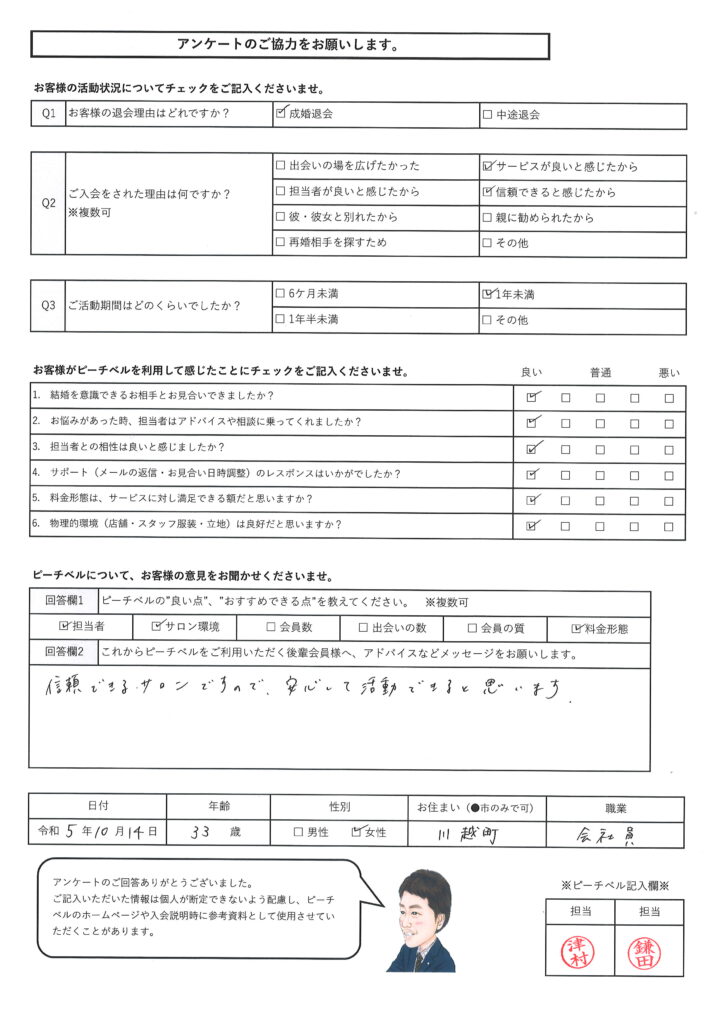 アンケートのご協力をお願いします。
お客様の活動状況についてチェックをご記入くださいませ。
Q1 お客様の退会理由はどれですか？ ☑成婚退会 □中途退会
Q2 ご入会をされた理由は何ですか？ ※複数可
□出会いの場を広げたかった ☑サービスが良いと感じたから
□担当者が良いと感じたから ☑信頼できると感じたから
□彼・彼女と別れたから □親に勧められたから
□再婚相手を探すため □その他
Q3 ご活動期間はどのくらいでしたか？
□6ケ月未満 ☑1年未満
□1年半未満 □その他
お客様がピーチベルを利用して感じたことにチェックをご記入くださいませ。 良い 普通 悪い
1. 結婚を意識できるお相手とお見合いできましたか？ ☑ □ □ □ □
2. お悩みがあった時、担当者はアドバイスや相談に乗ってくれましたか？ ☑ □ □ □ □
3. 担当者との相性は良いと感じましたか？ ☑ □ □ □ □
4. サポート（メールの返信・お見合い日時調整）のレスポンスはいかがでしたか？ ☑ □ □ □ □
5. 料金形態は、サービスに対し満足できる額だと思いますか？ ☑ □ □ □ □
6. 物理的環境（店舗・スタッフ服装・立地）は良好だと思いますか？ ☑ □ □ □ □
ピーチベルについて、お客様の意見をお聞かせくださいませ。
回答欄1 ピーチベルの"良い点"、"おすすめできる点"を教えてください。 ※複数可
☑担当者 ☑サロン環境 □会員数 □出会いの数 □会員の質 ☑料金形態
回答欄2 これからピーチベルをご利用いただく後輩会員様へ、アドバイスなどメッセージをお願いします。
信頼できるサロンですので、安心して活動できると思います.
日付 年齢 性別 お住まい（●市のみで可） 職業
令和5年10月14日 33歳 □男性 ☑女性 川越町 会社員
アンケートのご回答ありがとうございました。
ご記入いただいた情報は個人が断定できないよう配慮し、ピーチ
ベルのホームページや入会説明時に参考資料として使用させてい
ただくことがあります。
※ピーチベル記入欄※
担当 担当
津村 鎌田